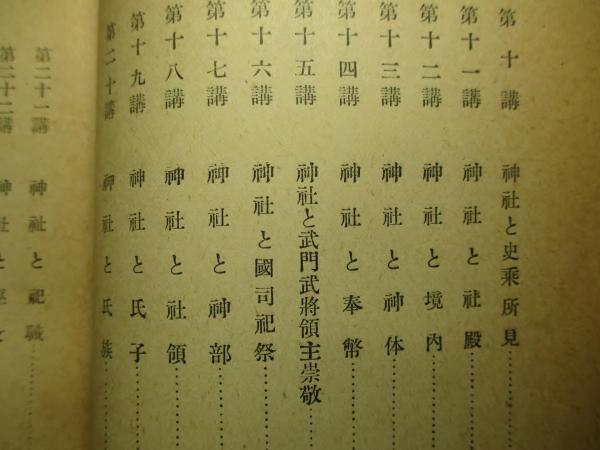 第十講 神社と史乘所見…………
第十一講 神社と社殿…………
第十二講 神社と境內…………
第十三講 神社と神体…………
第十四講 神社と奉幣…………
第十五講 神社と武門武將領主崇敬……
第十六講 神社と國司祀祭…………
第十七講 神社と神部…………
第十八講 神社と社領…………
第十九講 神社と氏子…………
第二十講 神社と氏族…………
第二十一講 神社と祀職…………
第二十二講 神社と